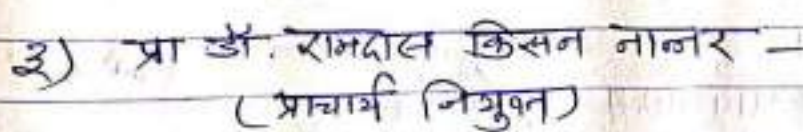 ३) प्रा डॉ. रामदास किसन नान्नर –
( प्राचार्य नियुक्त )